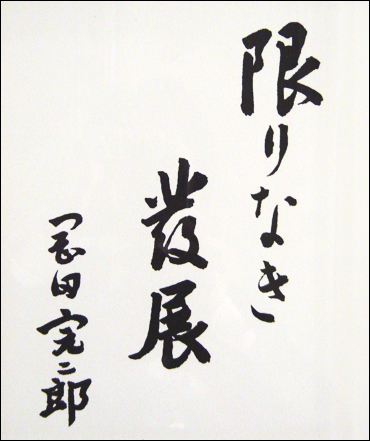 限りなき
發展
岡田完二郎